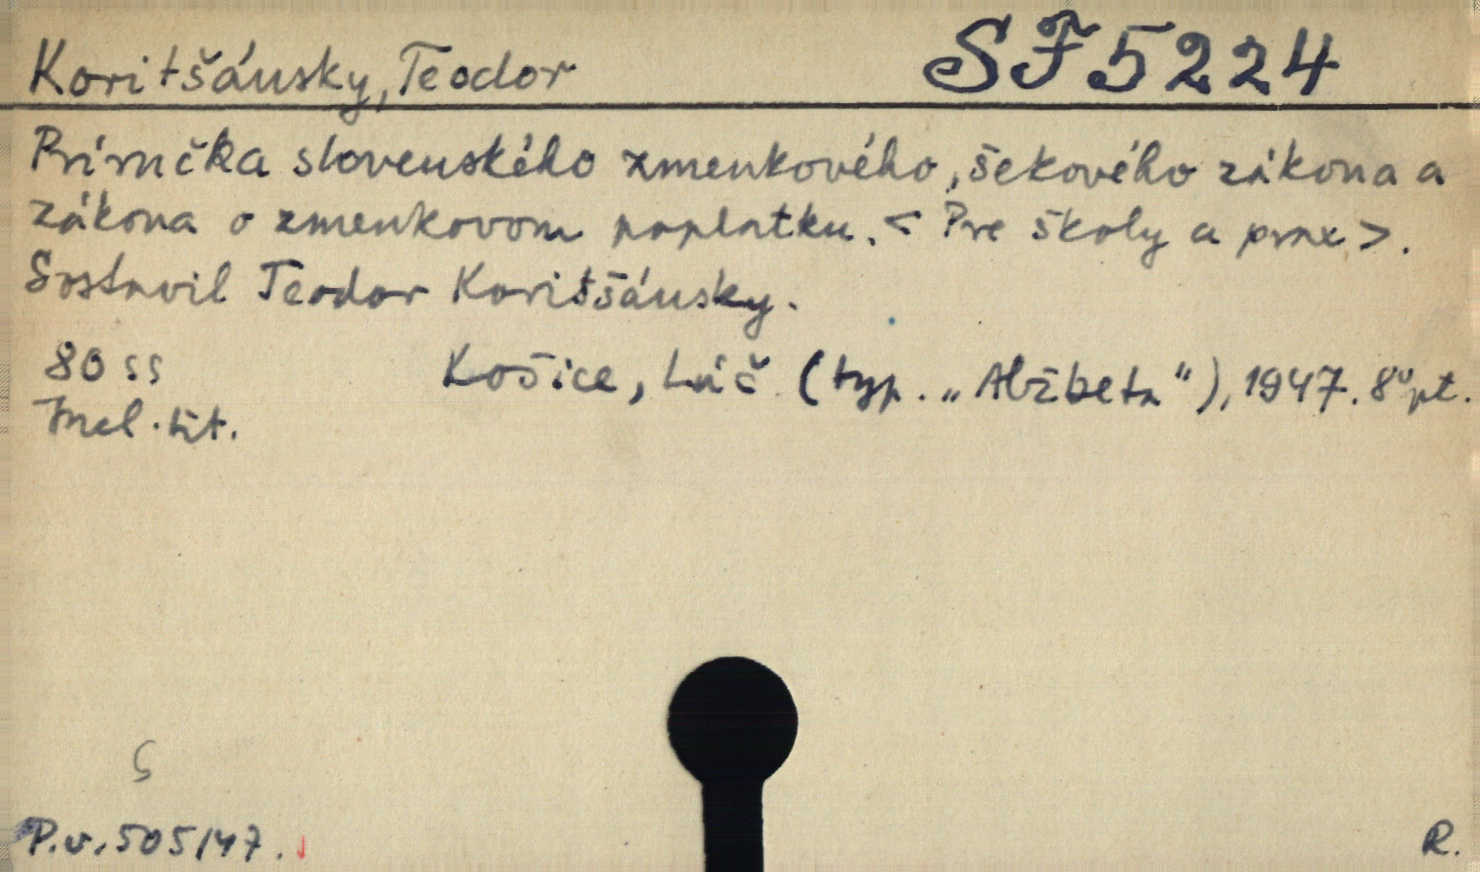 Koritšánsky, Teodor SF5224
Príručka slovenského zmenkového, šekového zákona a
zákona o zmenkovom poplatku. < Pre školy a prax >.
Sostavil Teodor Koritšánsky.
80 ss Košice, Lúč (typ. „Alžbeta"), 1947. 8° pt.
Incl. tit.
S
P.v. 505/47.
R.